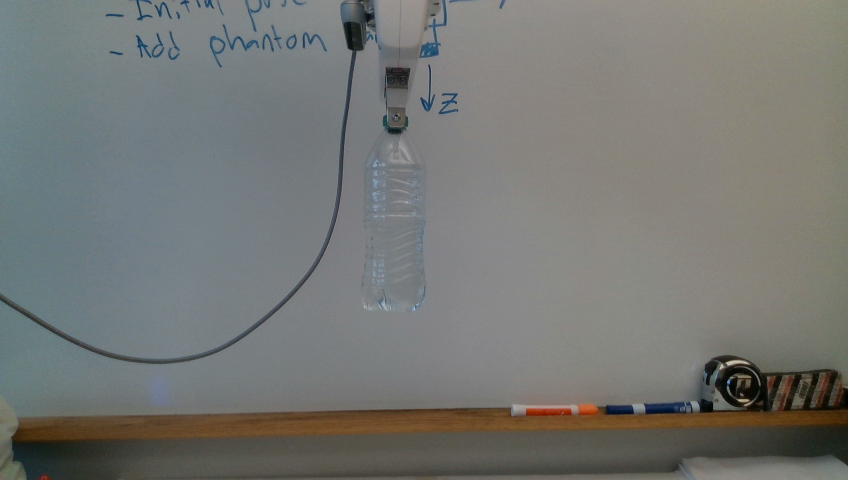 - Initial pose
- Add phantom
Z